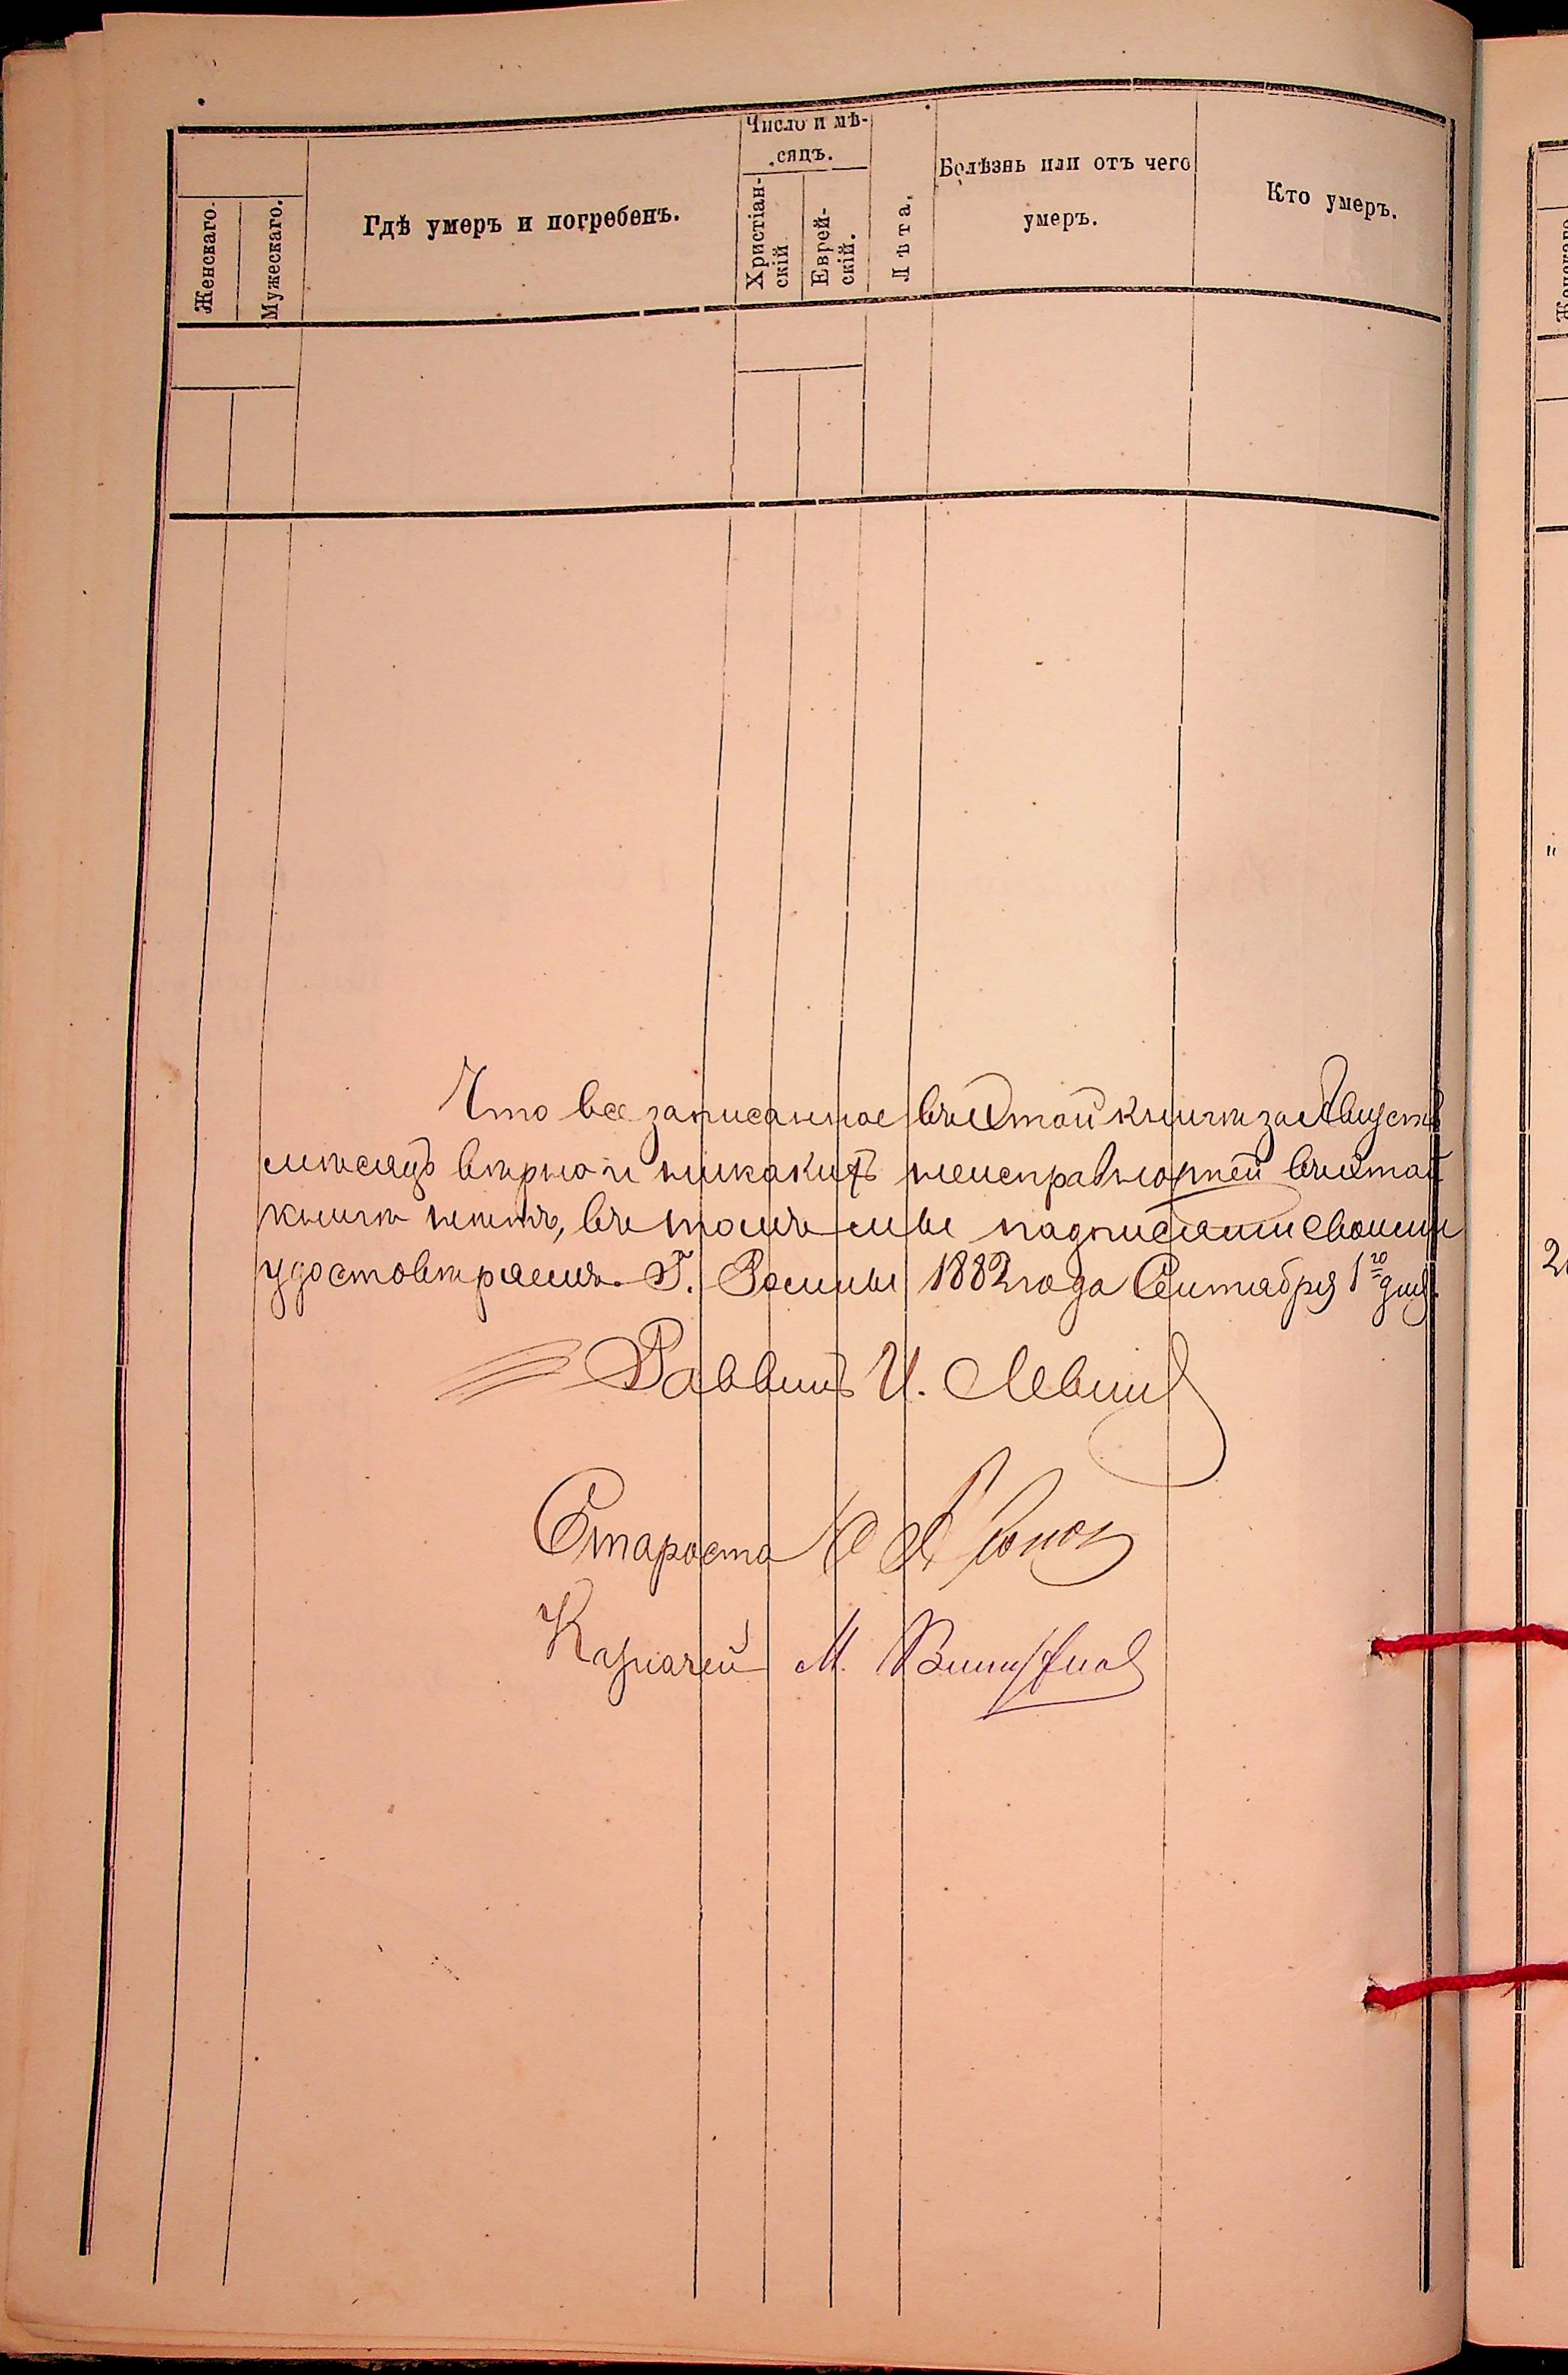 Число и мѣ-
сяцъ.
Женскаго.
Мужескаго.
Гдѣ умеръ и погребенъ.
Христіан-
скій
Еврей-
скій.
Лѣта.
Болѣзнь или отъ чего
умеръ.
Кто умеръ.
Что все записанное въ этой книгѣ за Августъ
мѣсяцъ вѣрно и никакихъ неисправностей въ этой
книгѣ нѣтъ, въ томъ мы подписями своими
удостовѣряемъ. Г. Ромны 1882 года Сентября 1го дня.
Раввинъ И. Левин
Староста
Казначей М.
Женскаго
"
2